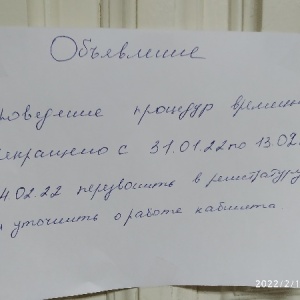 Объявление
роведение процедур времен
екращено с 31.01.22 по 13.02
4.02.22 перезвонить в регистратуру
и уточнить о работе кабинета.
2022/2/1